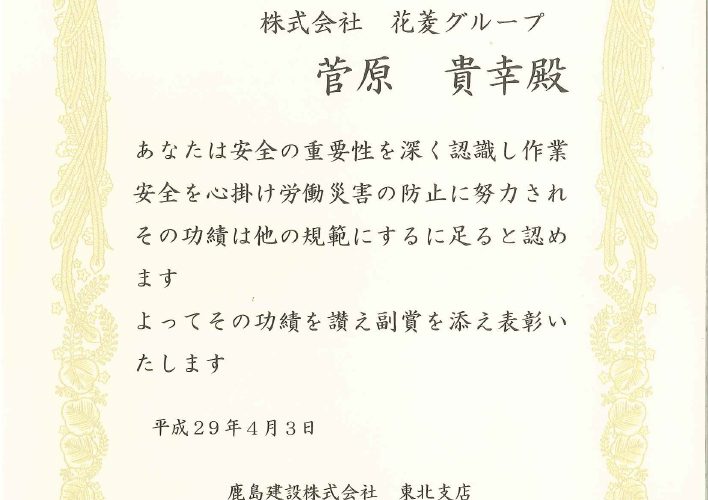 株式会社　花菱グループ
菅原　貴幸殿
あなたは安全の重要性を深く認識し作業
安全を心掛け労働災害の防止に努力され
その功績は他の規範にするに足ると認め
ます
よってその功績を讃え副賞を添え表彰い
たします
平成29年4月3日
鹿島建設株式会社　東北支店